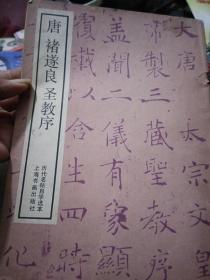 唐 褚遂良 圣教序
历代名帖自学选本
上海书画出版社
大唐太宗文皇
帝製三藏聖教序
蓋聞二儀有象顯
覆載以含生四時
化